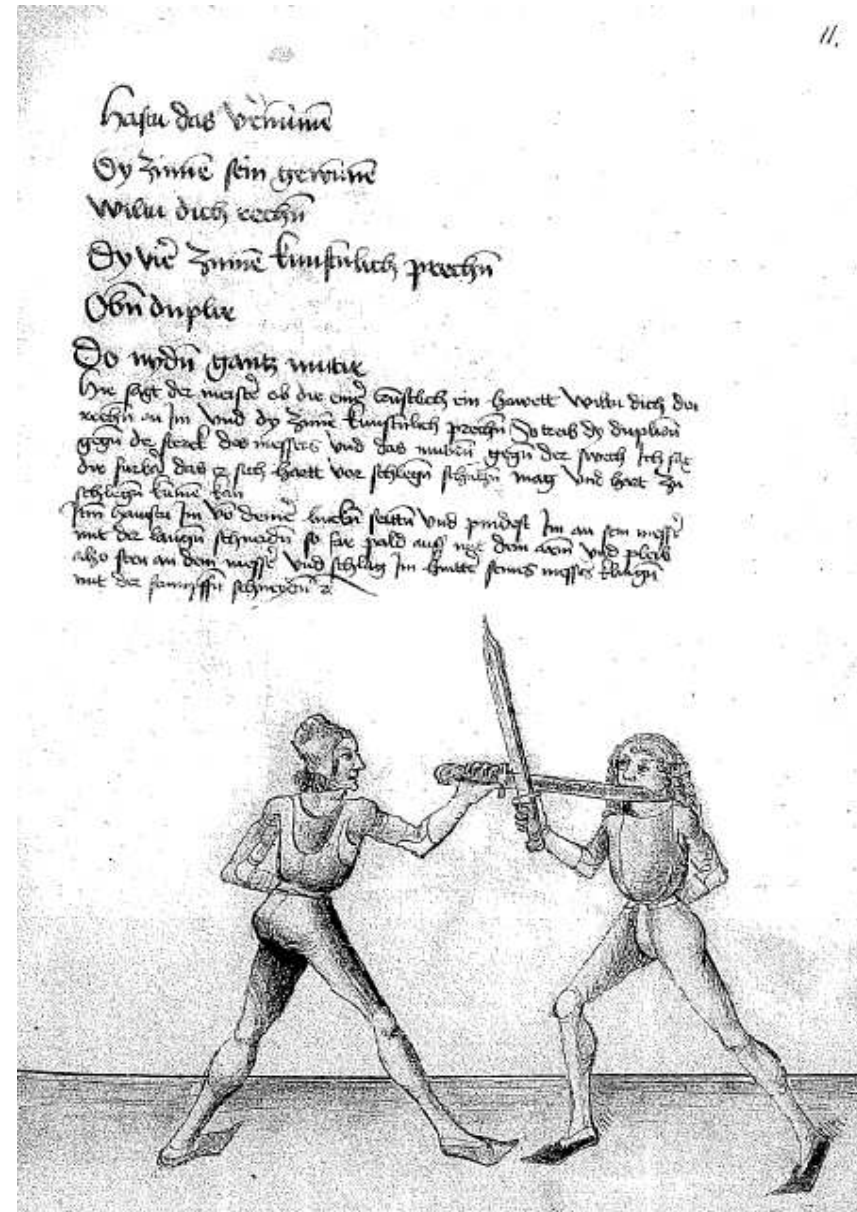 11.
Hastu das v̄numē
Dy zinnē sein gewūnē
Wiltu dich rechn̄
Dy vir̄ zinnē kunstūlich prechn̄
Obn̄ duplir
Do nydn̄ gantz mutir
Hie sagt der meistr̄ ob dir einr̄ kunstlich ein hawett Wiltu dich des
rechn̄ an Im Vnd dy zinnē kunstūlich prechn̄ So treib dy duplirn̄
gegn̄ der sterck des messers Vnd das mutirn̄ gegn̄ der swech Ich sag
dir das sich hartt vor schlegn̄ mag Vnd hart zu
schlegn̄ kan
Itm̄ haustu Im vō deinē lincken seittn̄ Vnd pindest Im an sein messr̄
mit der langn̄ schneidn̄ so far pald auff mit dem arm Vnd pleib
also an dem messr̄ Vnd schlag Im hinttr̄ seins messers klingn̄
mit der schneydn̄